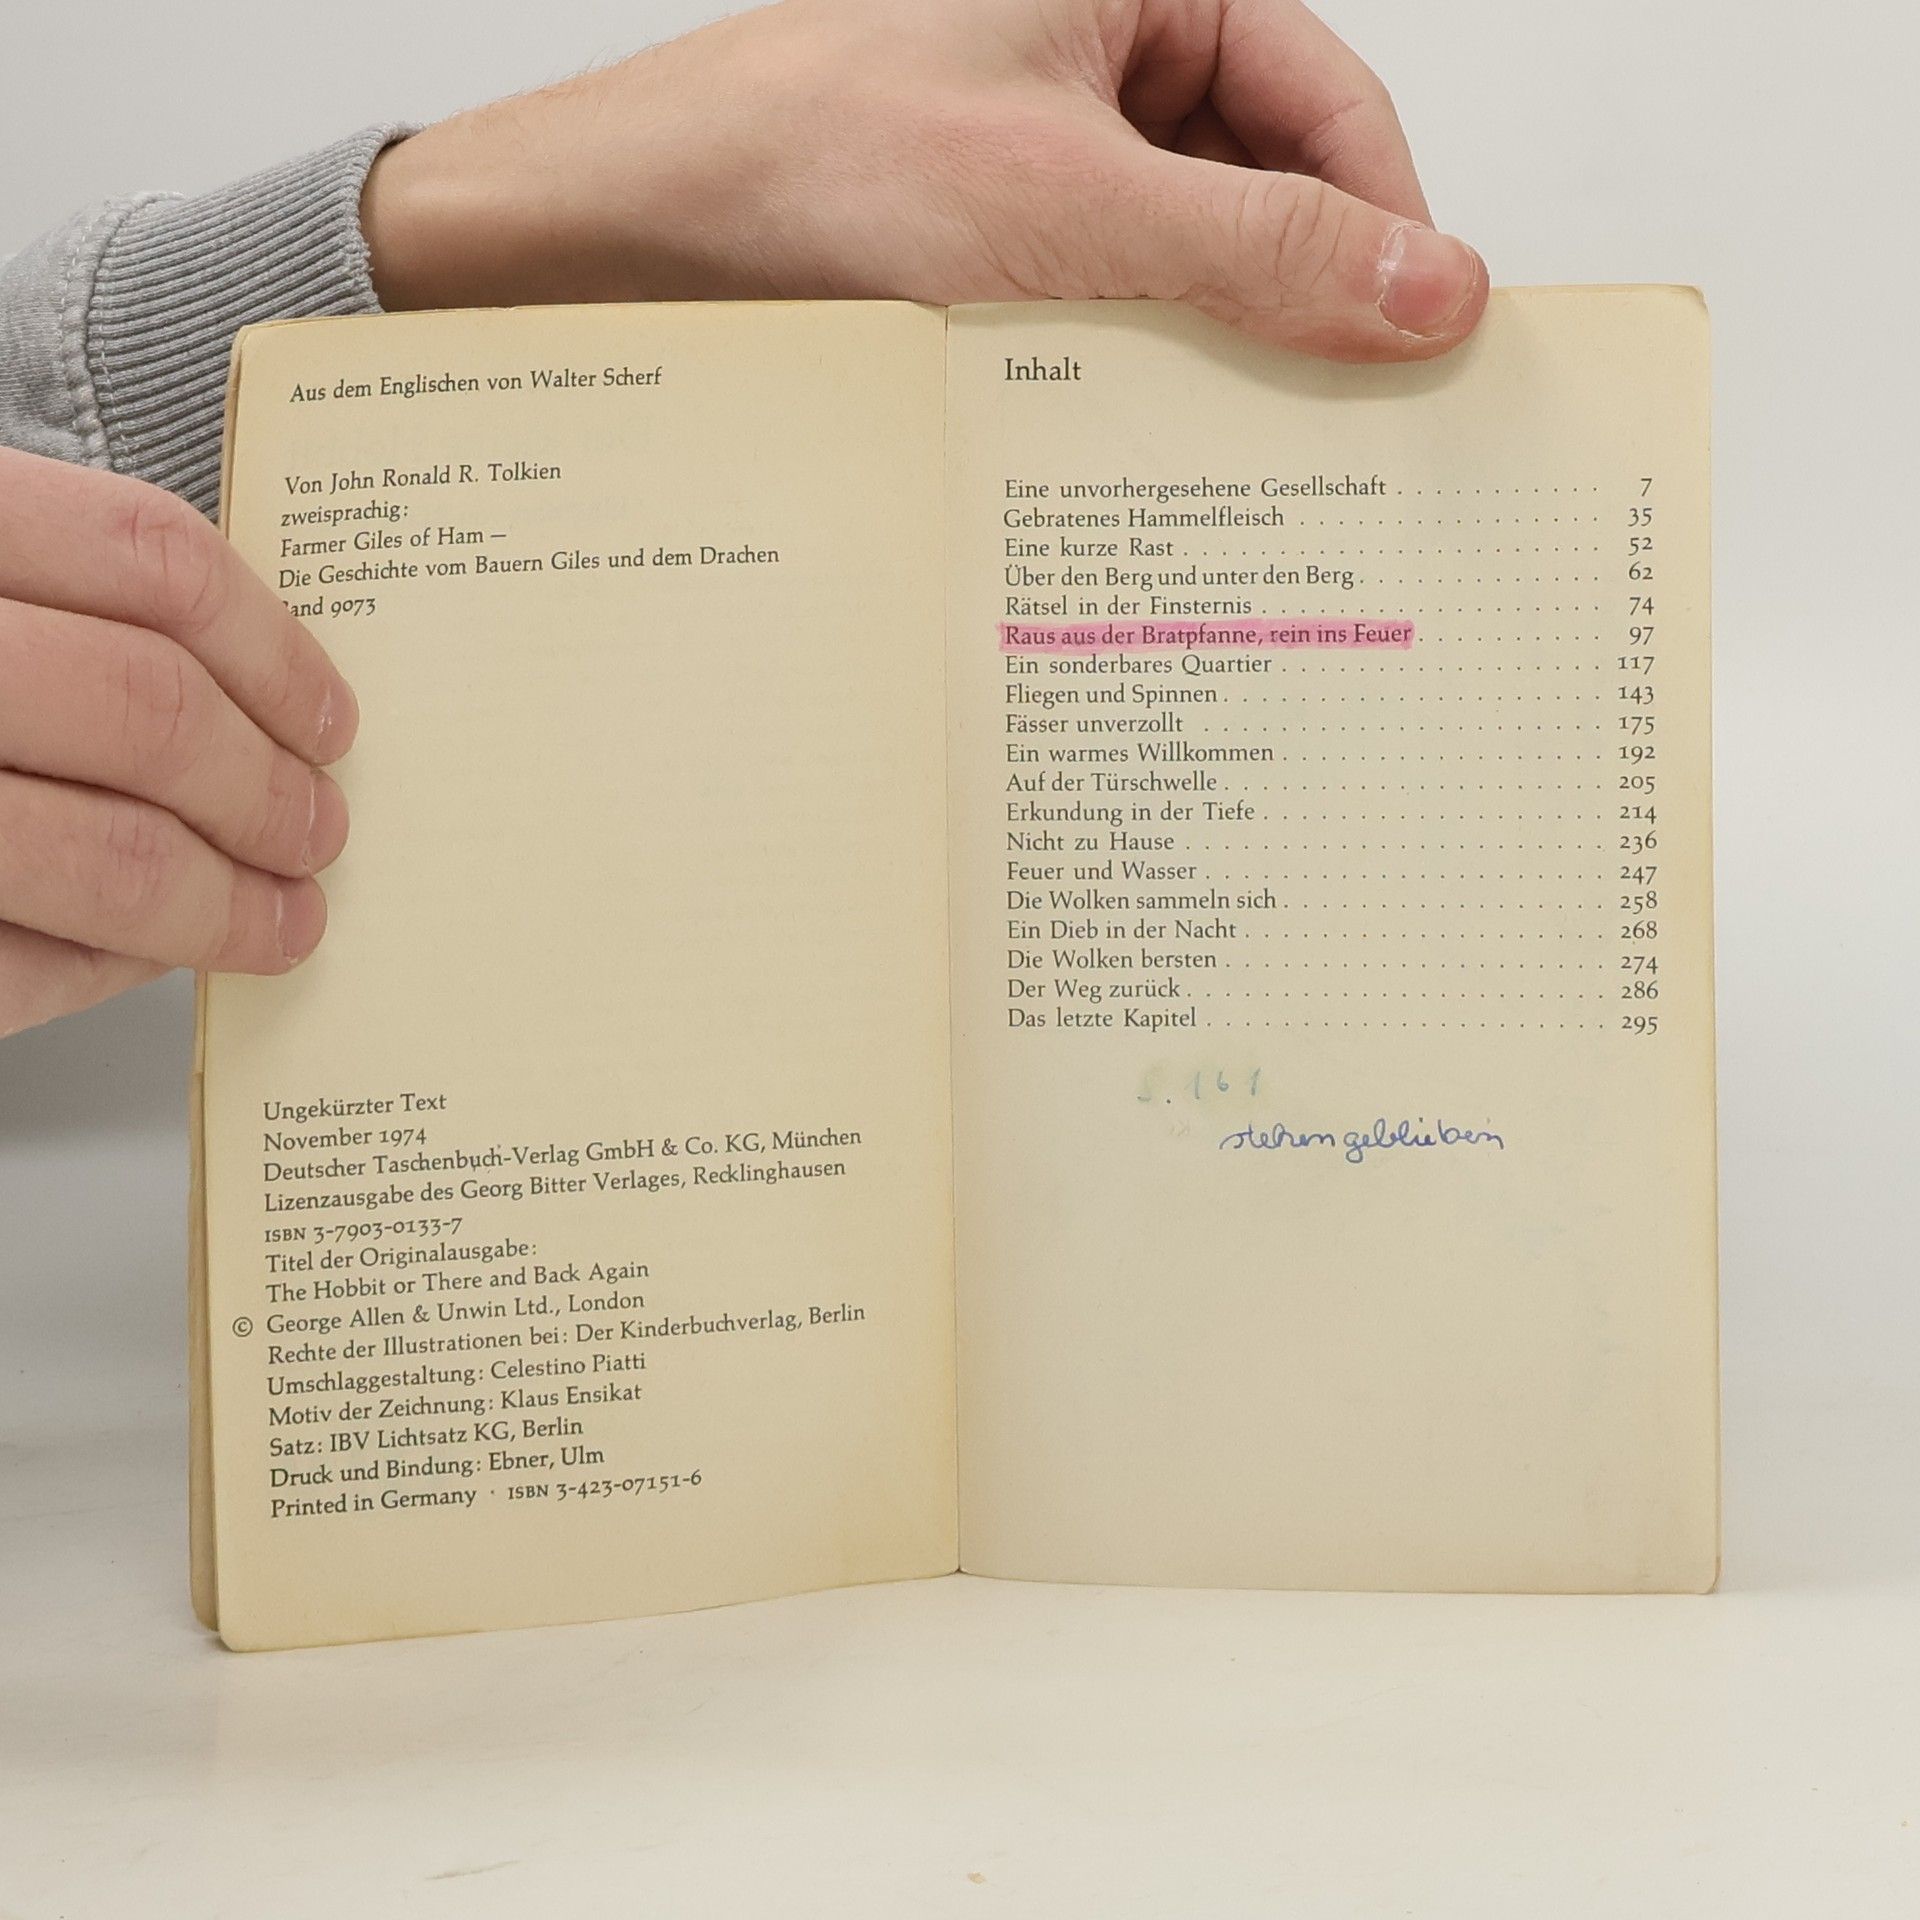 Aus dem Englischen von Walter Scherf
Von John Ronald R. Tolkien
zweisprachig:
Farmer Giles of Ham –
Die Geschichte vom Bauern Giles und dem Drachen
Band 9073
Ungekürzter Text
November 1974
Deutscher Taschenbuch-Verlag GmbH & Co. KG, München
Lizenzausgabe des Georg Bitter Verlages, Recklinghausen
ISBN 3-7903-0133-7
Titel der Originalausgabe:
The Hobbit or There and Back Again
© George Allen & Unwin Ltd., London
Rechte der Illustrationen bei: Der Kinderbuchverlag, Berlin
Umschlaggestaltung: Celestino Piatti
Motiv der Zeichnung: Klaus Ensikat
Satz: IBV Lichtsatz KG, Berlin
Druck und Bindung: Ebner, Ulm
Printed in Germany · ISBN 3-423-07151-6
Inhalt
Eine unvorhergesehene Gesellschaft . . . . . . . . . . . 7
Gebratenes Hammelfleisch . . . . . . . . . . . . . . . . 35
Eine kurze Rast . . . . . . . . . . . . . . . . . . . . . . 52
Über den Berg und unter den Berg . . . . . . . . . . . . . 62
Rätsel in der Finsternis . . . . . . . . . . . . . . . . . . 74
Raus aus der Bratpfanne, rein ins Feuer . . . . . . . . . . 97
Ein sonderbares Quartier . . . . . . . . . . . . . . . . . 117
Fliegen und Spinnen . . . . . . . . . . . . . . . . . . . . 143
Fässer unverzollt . . . . . . . . . . . . . . . . . . . . . 175
Ein warmes Willkommen . . . . . . . . . . . . . . . . . 192
Auf der Türschwelle . . . . . . . . . . . . . . . . . . . . 205
Erkundung in der Tiefe . . . . . . . . . . . . . . . . . . 214
Nicht zu Hause . . . . . . . . . . . . . . . . . . . . . . 236
Feuer und Wasser . . . . . . . . . . . . . . . . . . . . . 247
Die Wolken sammeln sich . . . . . . . . . . . . . . . . . 258
Ein Dieb in der Nacht . . . . . . . . . . . . . . . . . . . 268
Die Wolken bersten . . . . . . . . . . . . . . . . . . . . 274
Der Weg zurück . . . . . . . . . . . . . . . . . . . . . . 286
Das letzte Kapitel . . . . . . . . . . . . . . . . . . . . . 295
S. 161
stehengeblieben